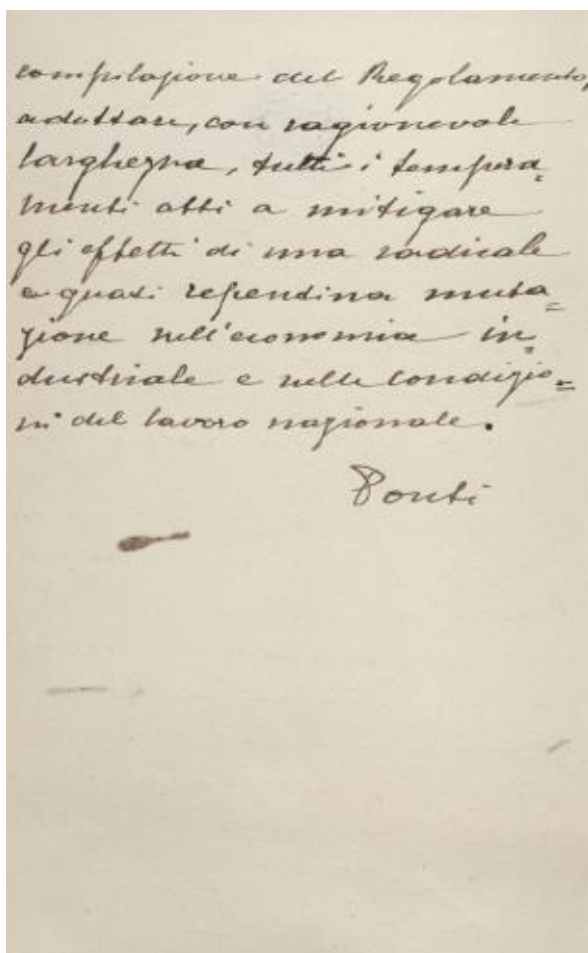 compilazione del Regolamento,
adottare, con ragionevole
larghezza, tutti i tempera=
menti atti a mitigare
gli effetti di una radicale
e quasi repentina muta=
zione nell'economia in=
dustriale e nelle condizio=
ni del lavoro nazionale.
Ponti